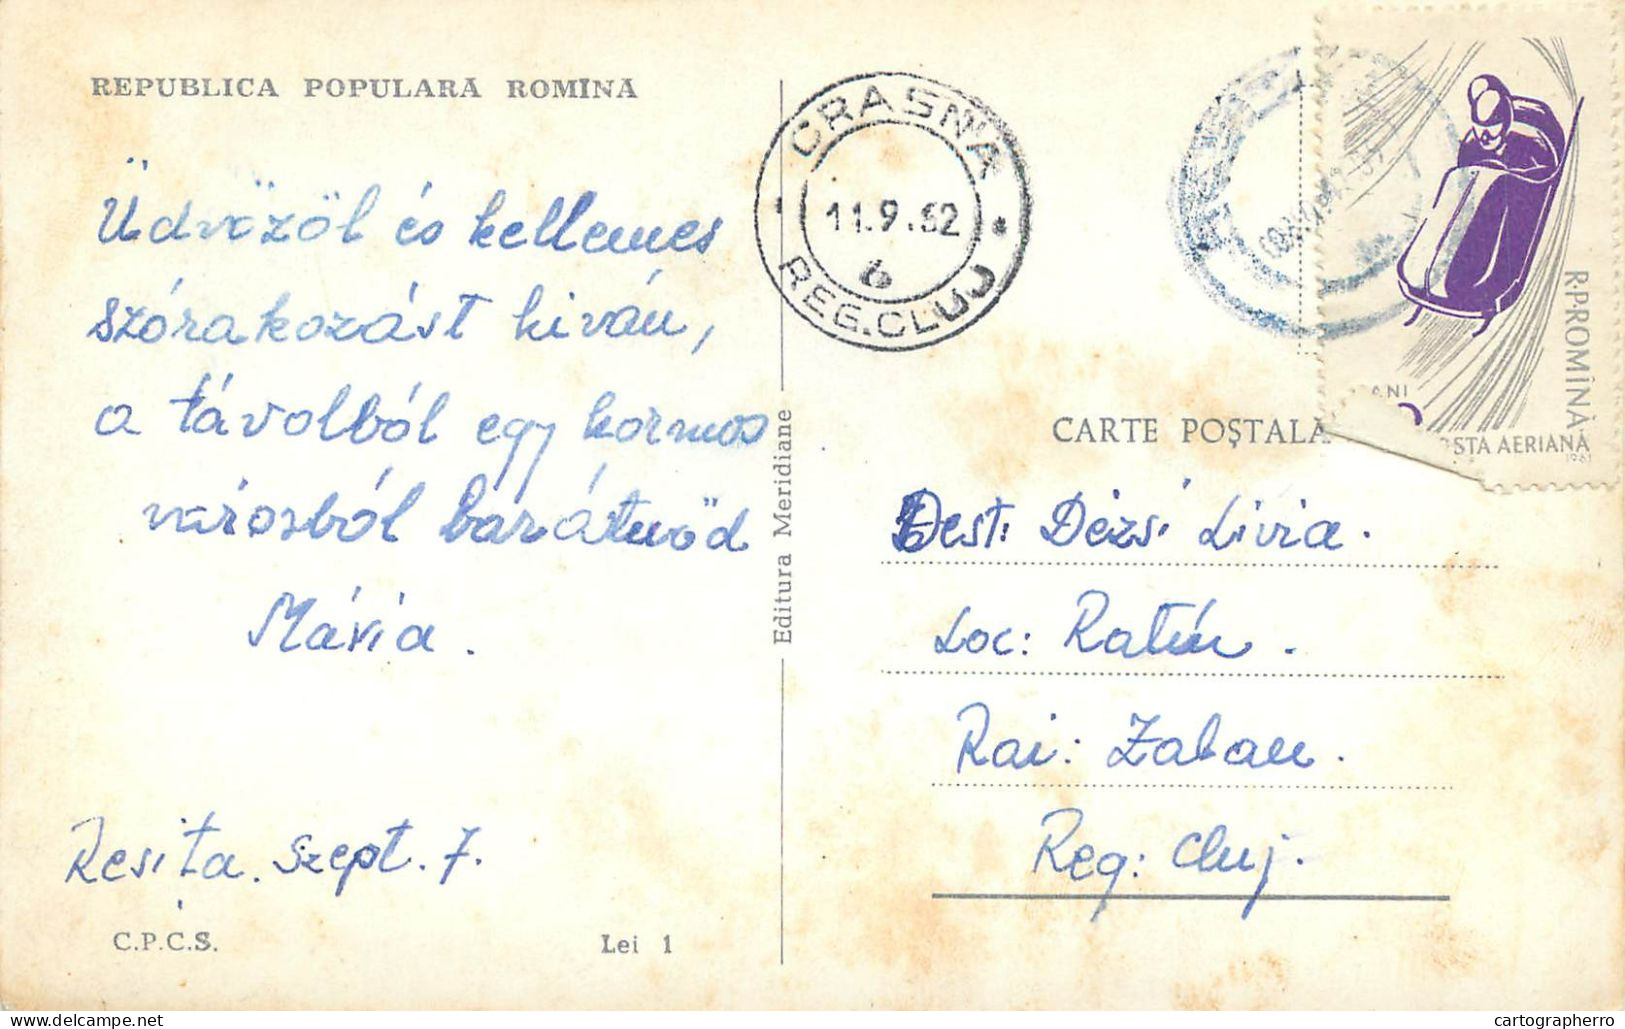 REPUBLICA POPULARĂ ROMÎNĂ
Üdvözöl és kellemes
szórakozást kiván,
a távolból egy kormos
városból barátnőd
Mária.
Resita. Szept. 7.
C.P.C.S.
Lei 1
Editura Meridiane
CRASNA
11.9.62
6
REG. CLUJ
R.P.ROMÎNĂ
ANI
STA AERIANĂ
1961
CARTE POŞTALĂ
Dest: Dézsi Livia.
Loc: Ratin.
Rai: Zalau.
Reg: Cluj.
delcampe.net
cartographerro